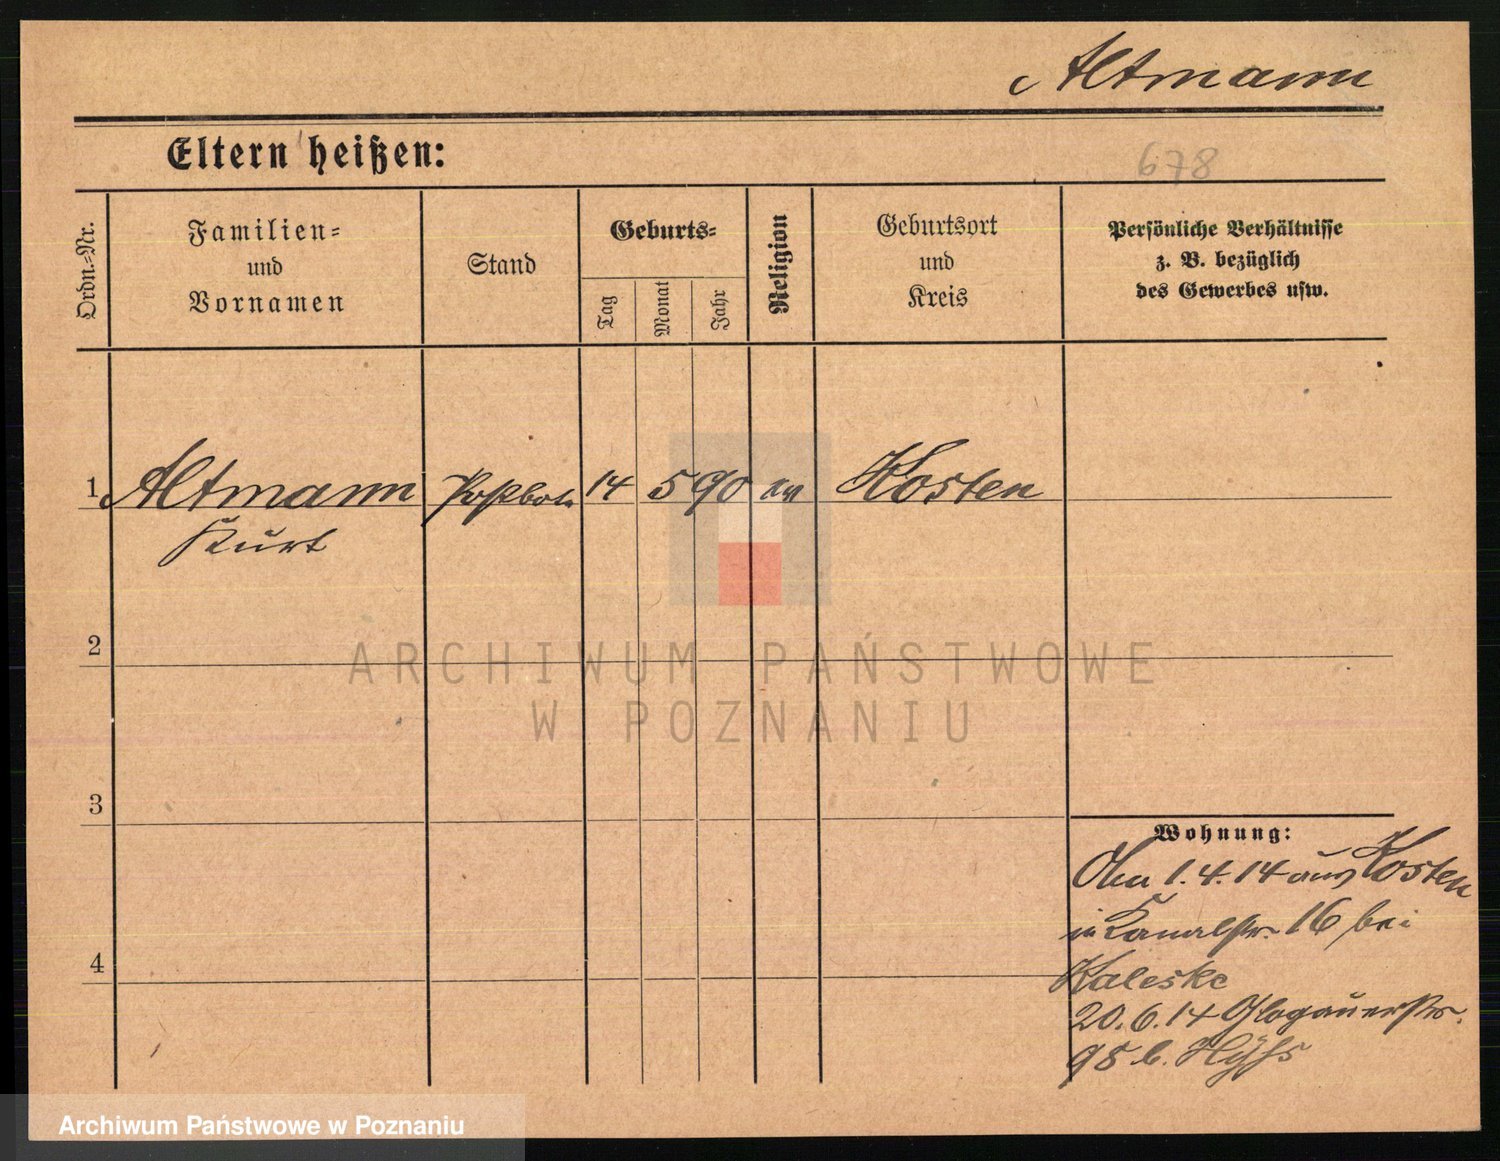 Altmann
Eltern heißen:
678
Ordn.-Nr.
Familien-
und
Vornamen
Stand
Geburts-
Tag
Monat
Jahr
Religion
Geburtsort
und
Kreis
Persönliche Verhältnisse
z. B. bezüglich
des Gewerbes usw.
1 Altmann Postbote 14 5 90 ev Kosten
Kurt
2
ARCHIWUM PAŃSTWOWE
W POZNANIU
3
Wohnung:
1.4.14 aus Kosten
in Kanalstr. 16 bei
4
Kaleske
20.6.14 Glogauerstr.
95 b.
Archiwum Państwowe w Poznaniu